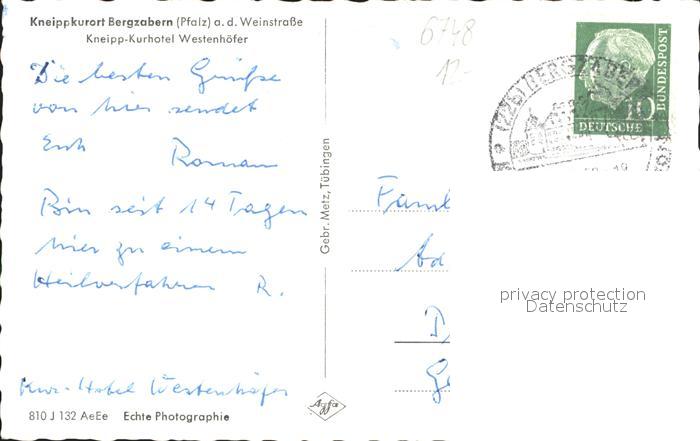 Kneippkurort Bergzabern (Pfalz) a. d. Weinstraße
Kneipp-Kurhotel Westenhöfer
Die besten Grüße
von hier sendet
Euch Roman
Bin seit 14 Tagen
hier zu einem
Heilverfahren R.
Kur-Hotel Westenhöfer
810 J 132 AeEe Echte Photographie
Gebr. Metz, Tübingen
Agfa
6748
12.-
(22b) BERGZABERN
10
DEUTSCHE
BUNDESPOST
Faml
privacy protection
Datenschutz